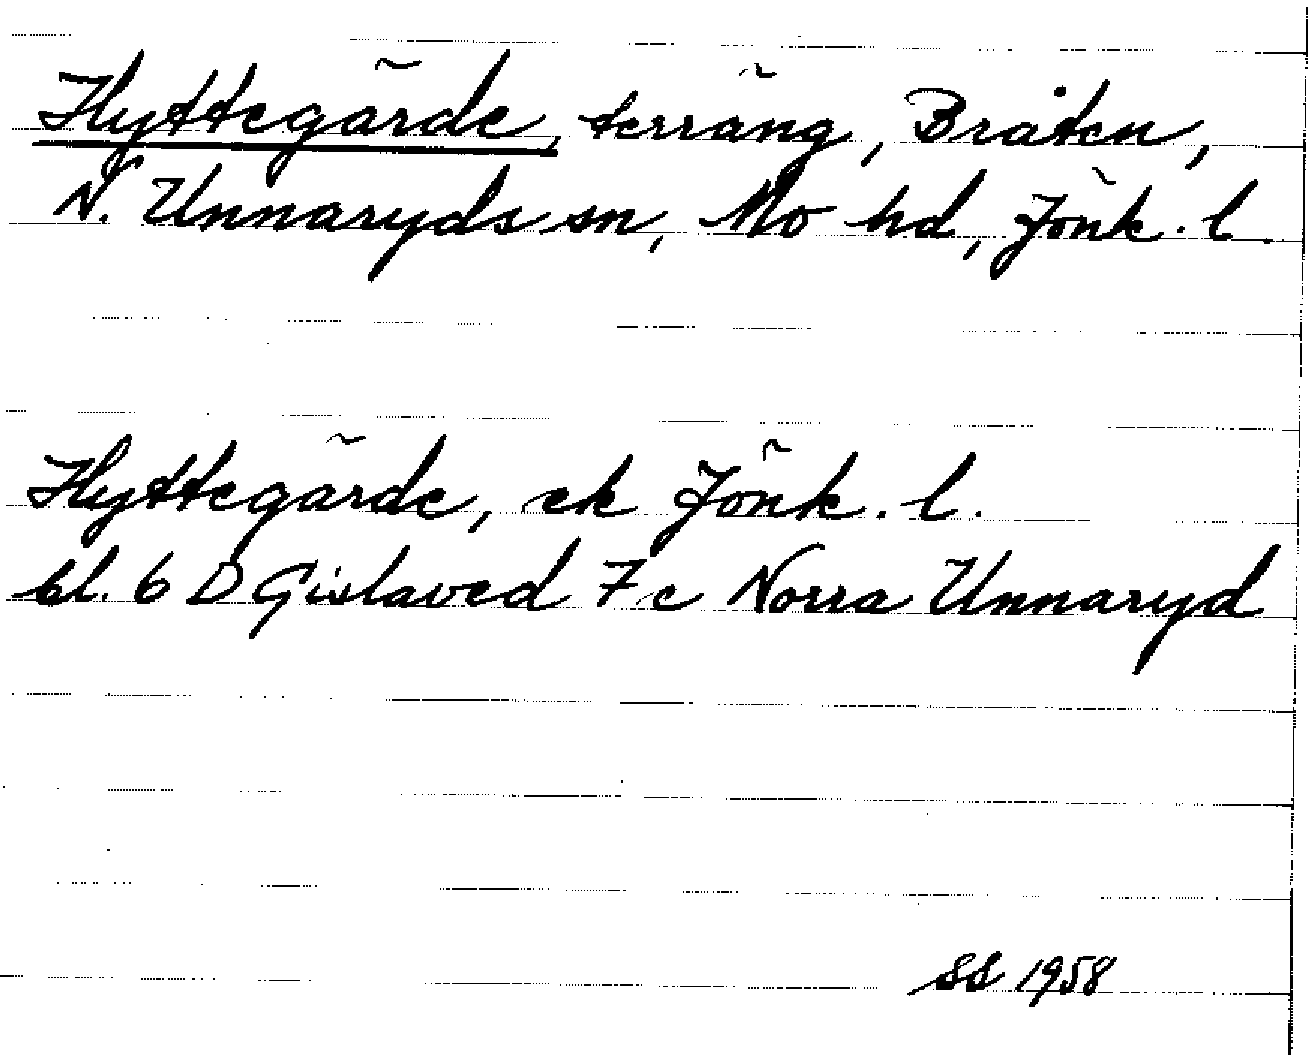 Hyttegärde, terräng, Bråten,
N. Unnaryds sn, Mo hd, Jönk. l.
Hyttegärde, ek Jönk. l.
bl. 6 D Gislaved 7 c Norra Unnaryd
SS 1958